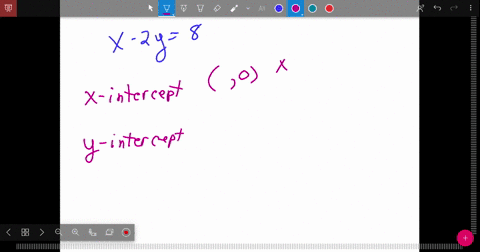 x - 2y = 8
x-intercept ( ,0) x
y-intercept